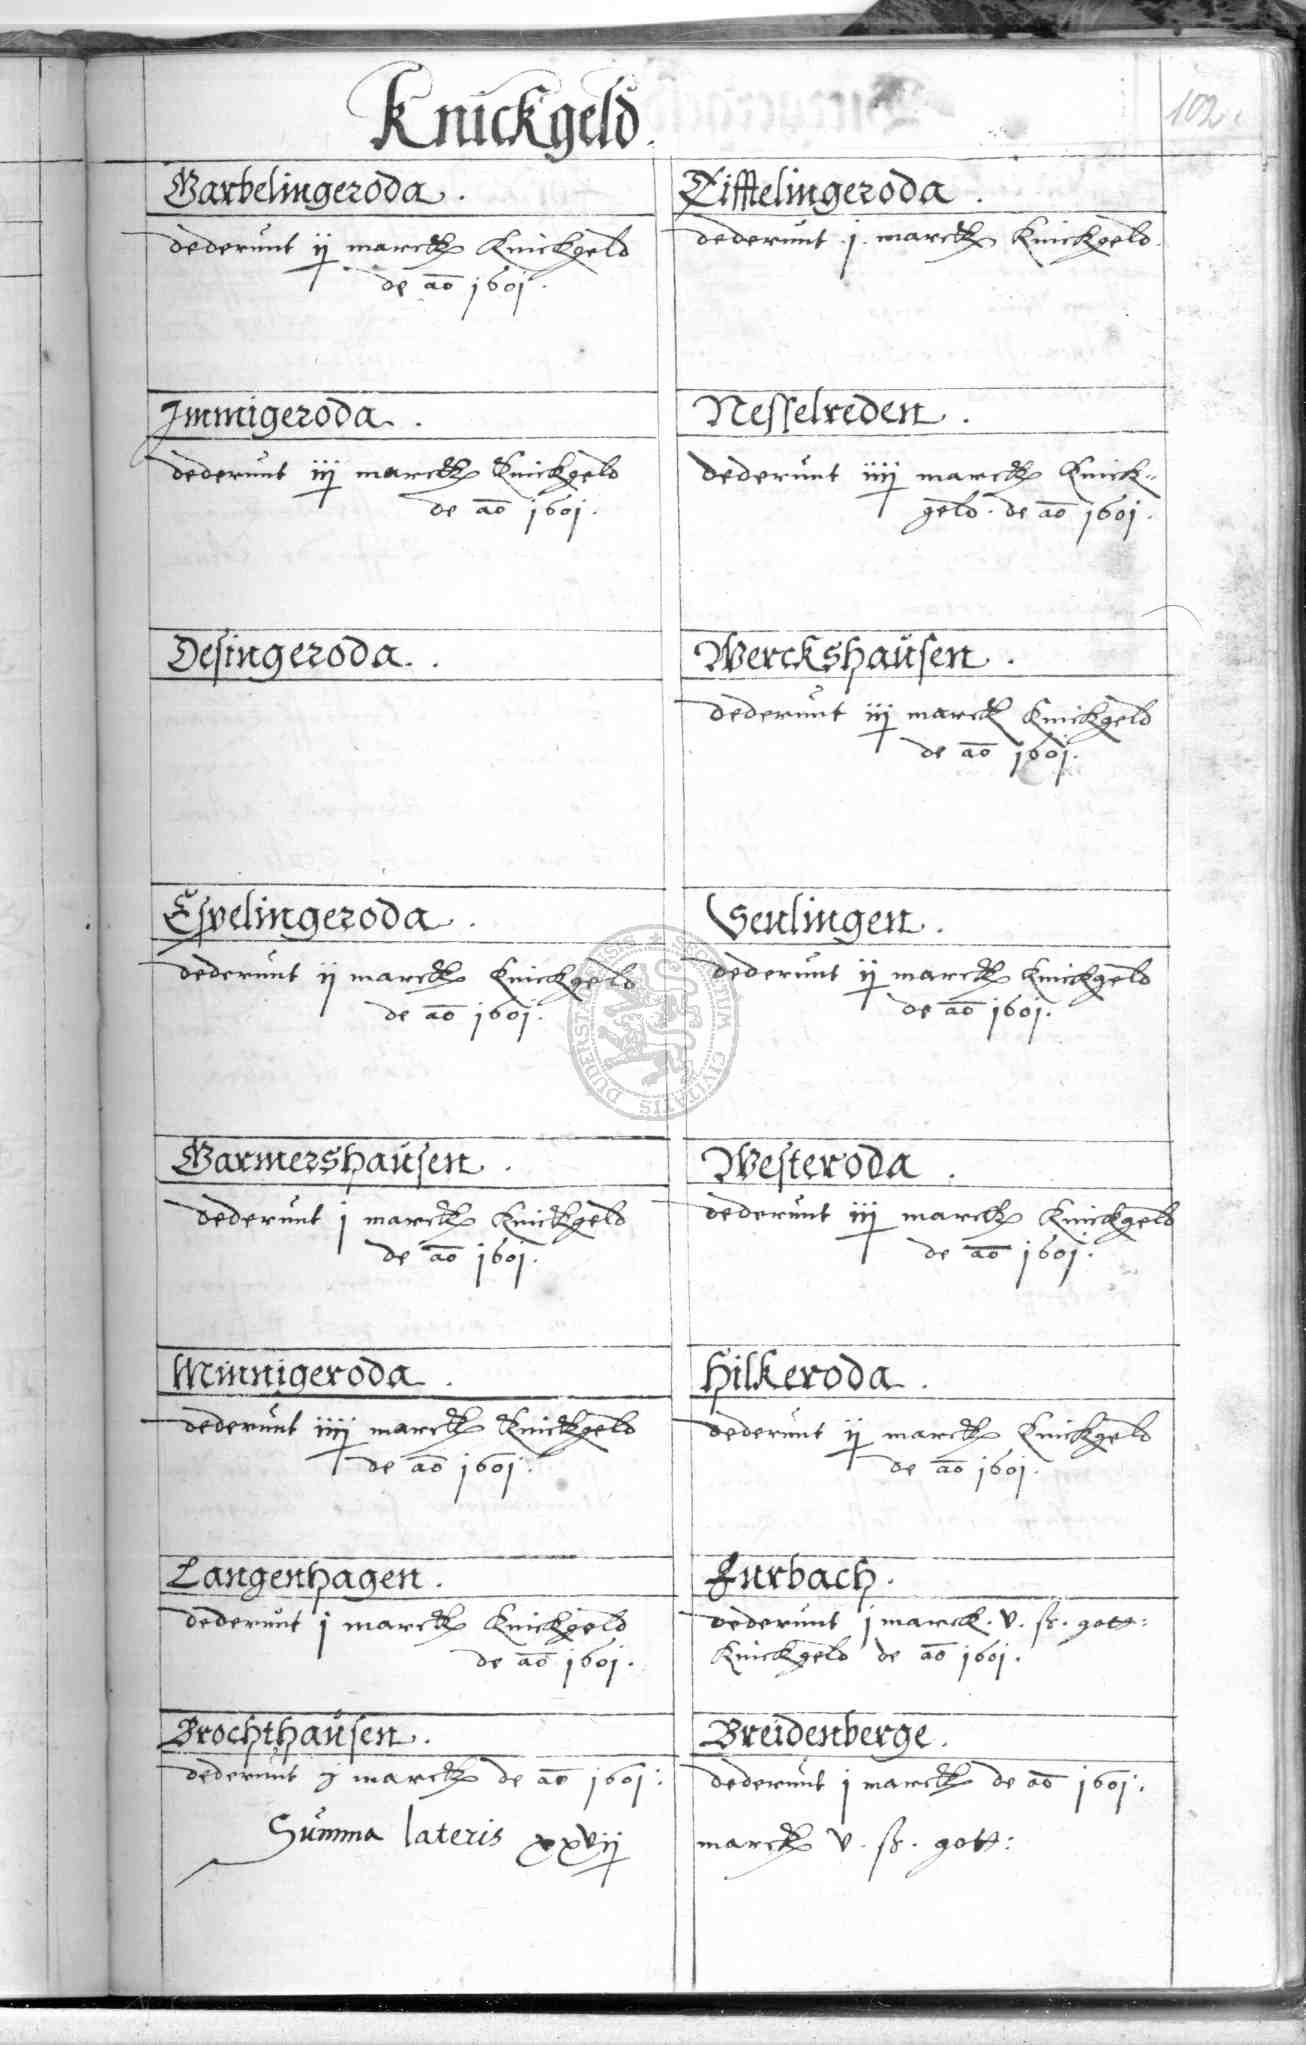 102.
Knickgeld.
Garbelingeroda.
dederunt ij marck Knickgeld
de ao 1601.
Tifftelingeroda.
dederunt .j. marck Knickgeld.
Immigeroda.
dederunt iij marck Knickgeld
de ao 1601.
Nesselreden.
dederunt iiij marck Knick=
geld. de ao 1601.
Desingeroda.
Werckshaüsen.
dederunt iij marck Knickgeld
de ao 1601.
Espelingeroda.
dederunt ij marck Knickgeld
de ao 1601.
Seulingen.
dederunt ij marck Knickgeld
de ao 1601.
Garmershaüsen.
dederunt j marck Knickgeld
de ao 1601.
Westeroda.
dederunt iij marck Knickgeld
de ao 1601.
Minnigeroda.
dederunt iiij marck Knickgeld
de ao 1601.
Hilkeroda.
dederunt ij marck Knickgeld
de ao 1601.
Langenhagen.
dederunt j marck Knickgeld
de ao 1601.
Furbach.
dederunt j marck. v. ß. gott:
Knickgeld de ao 1601.
Brochthaüsen.
dederunt j marck de ao 1601.
Breidenberge.
dederunt j marck de ao 1601.
Summa lateris xxvij marck v. ß. gott:
SIGILLUM CIVITATIS DUDERSTADENSIS